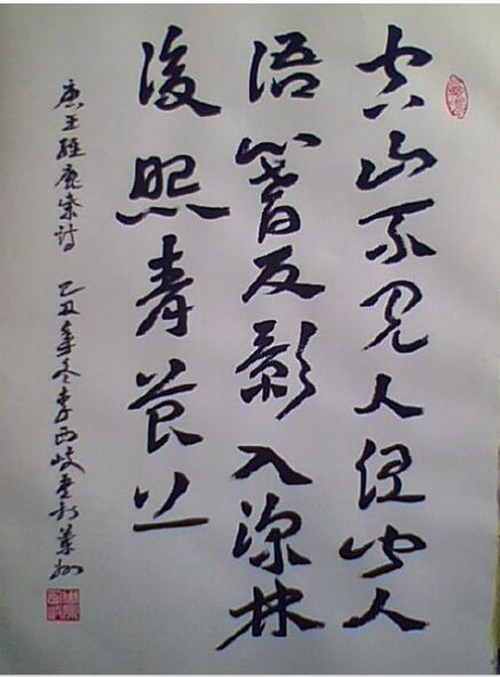 空山不见人但闻人
语響反影入深林
復照青苔上
唐王維鹿柴诗 乙丑年冬李西岐书於蘭州